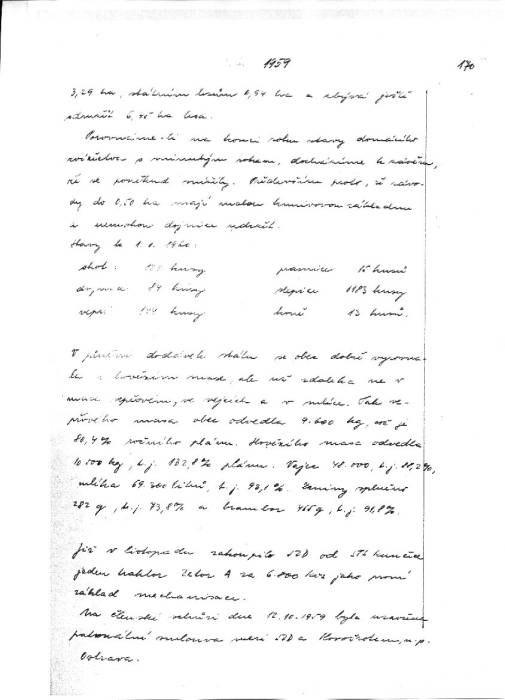 1959 170
3,29 ha, státním lesům 0,54 ha a zbývá ještě
sdruž. 6,45 ha lesa.
Porovnáme-li na konci roku stavy domácího
zvířectva s minulým rokem, docházíme k závěru,
že se poněkud snížily. Především proto, že závo-
dy do 0,50 ha mají malou krmivovou základnu
a nemohou dojnice udržet.
Stavy k 1.1. 1960:
skot: kusy prasnice 15 kusů
dojnice 84 kusy slepice 1183 kusy
vepři 144 kusy koně 13 kusů.
V plnění dodávek státu se obec dobře vyrovna-
la v hovězím mase, ale už zdaleka ne v
mase vepřovém, ve vejcích a v mléce. Tak ve-
přového masa obec odvedla 9.600 kg, což je
80,4% ročního plánu. Hovězího masa odvedla
10.500 kg, t.j. 132,8% plánu. Vajec 48.000, t.j. %,
mléka 69.200 litrů, t.j. 92,1%. Zeminy splněno
282 q, t.j. 73,8% a brambor 455 q, t.j. 91,8%.
Již v listopadu zakoupilo JZD od STS Kunčice
jeden traktor Zetor A za 6.800 Kčs jako první
základ mechanisace.
Na členské schůzi dne 12.10.1959 byla uzavřena
patronátní smlouva mezi JZD a n.p.
Ostrava.